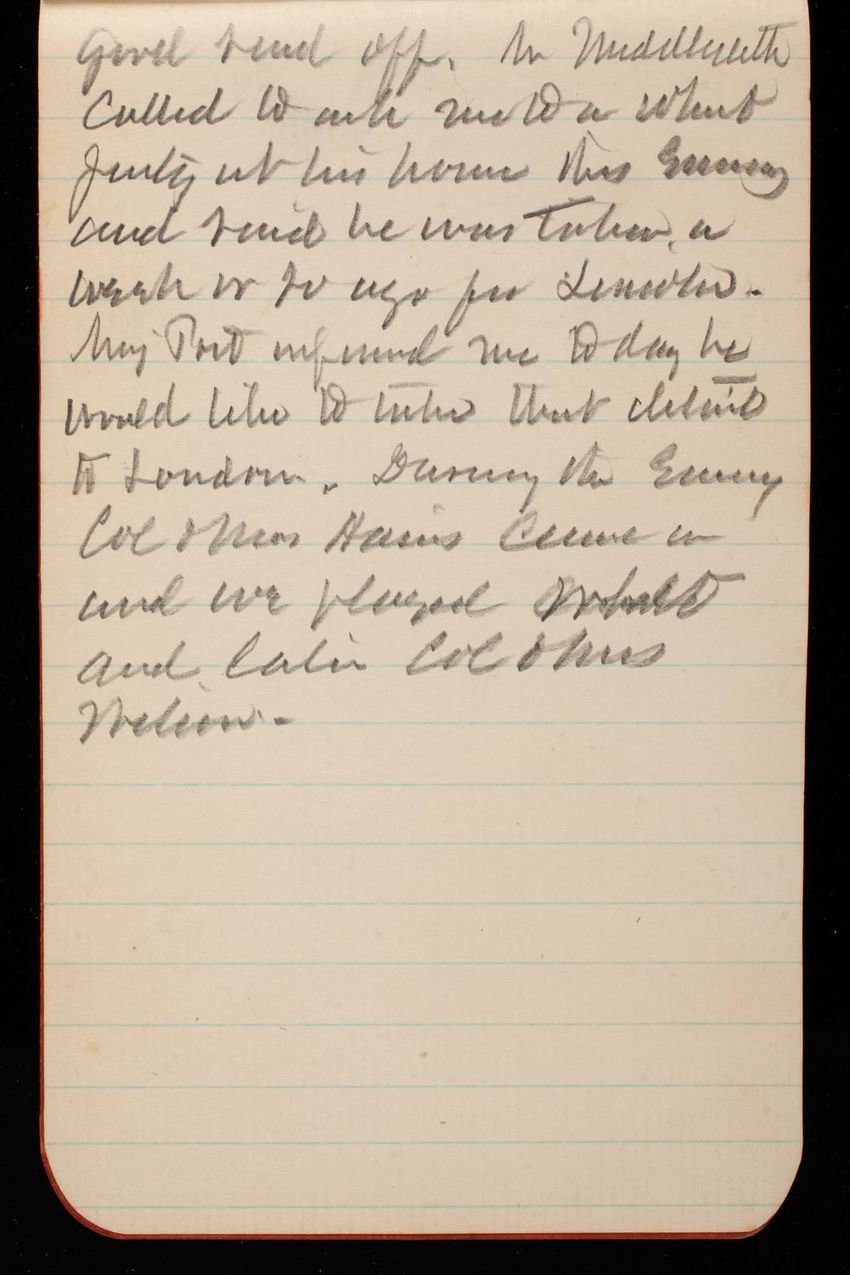 good send off. Mr Middlebrooth
called to ask me to a whist
party at his home this Evening
and said he was taken a
week or so ago for Lincoln.
Maj Post informed me today he
would like to take that detail
to London. During the Evening
Col & Mrs Hains came in
and we played whist
and later Col & Mrs
Wilson.